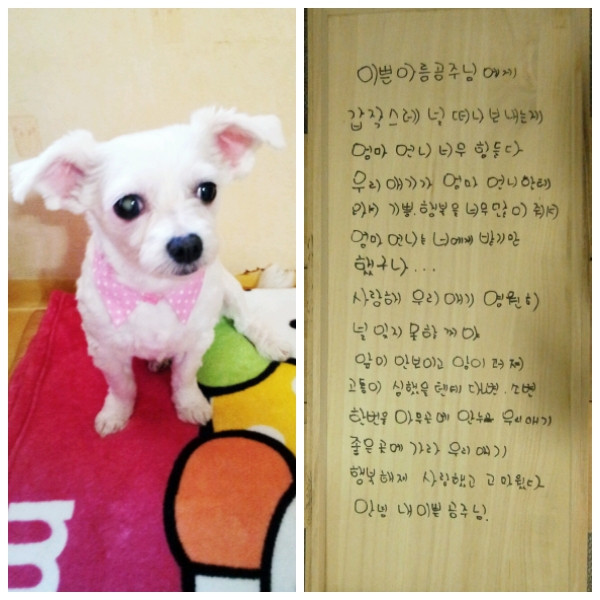 이쁜아름공주님에게
갑작스레 널 떠나보내는게
엄마 언니 너무 힘든다
우리 애기가 엄마 언니한테
기쁨.행복을 너무많이 줘서
엄마 언니는 너에게 받기만
했구나...
사랑해 우리 애기 영원히
널 잊지 못할꺼야
앞이 안보이고 암이 터져
고통이 심했을텐데 대변.소변
한번을 아무곳에 안누 우리애기
좋은곳에 가라 우리애기
행복해제 사랑했고 고마웠다
안녕 내이쁜 공주님.
m